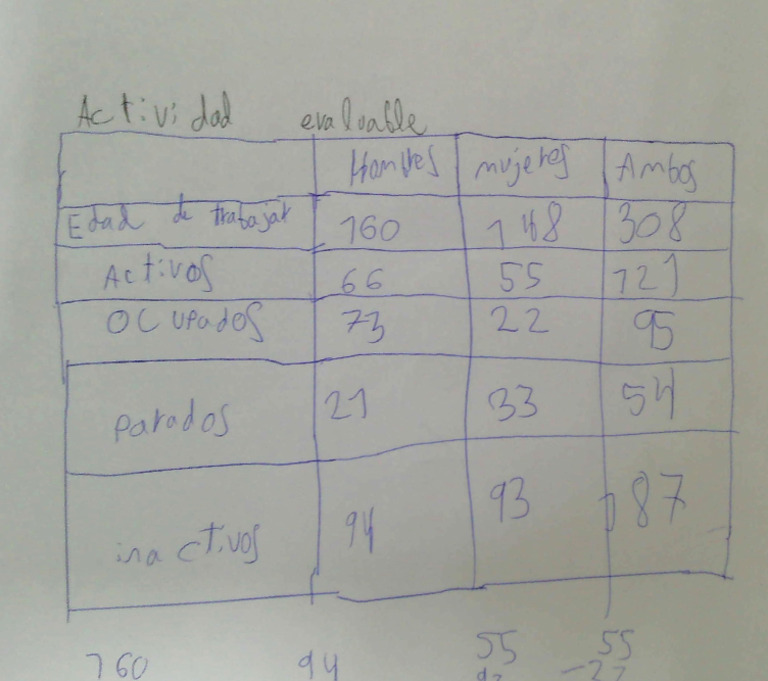 Actividad evaluable
Hombres mujeres Ambos
Edad de trabajar 160 148 308
Activos 66 55 121
OCUPados 73 22 95
parados 21 33 54
inactivos 94 93 187
160 94 55 55